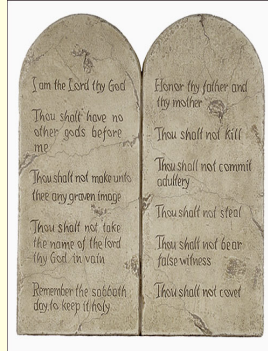 I am the Lord thy God
Thou shalt have no
other gods before
me
Thou shalt not make unto
thee any graven image
Thou shalt not take
the name of the lord
thy God in vain
Remember the sabbath
day to keep it holy
Honor thy father and
thy mother
Thou shall not kill
Thou shall not commit
adultery
Thou shalt not steal
Thou shall not bear
false witness
Thou shall not covet